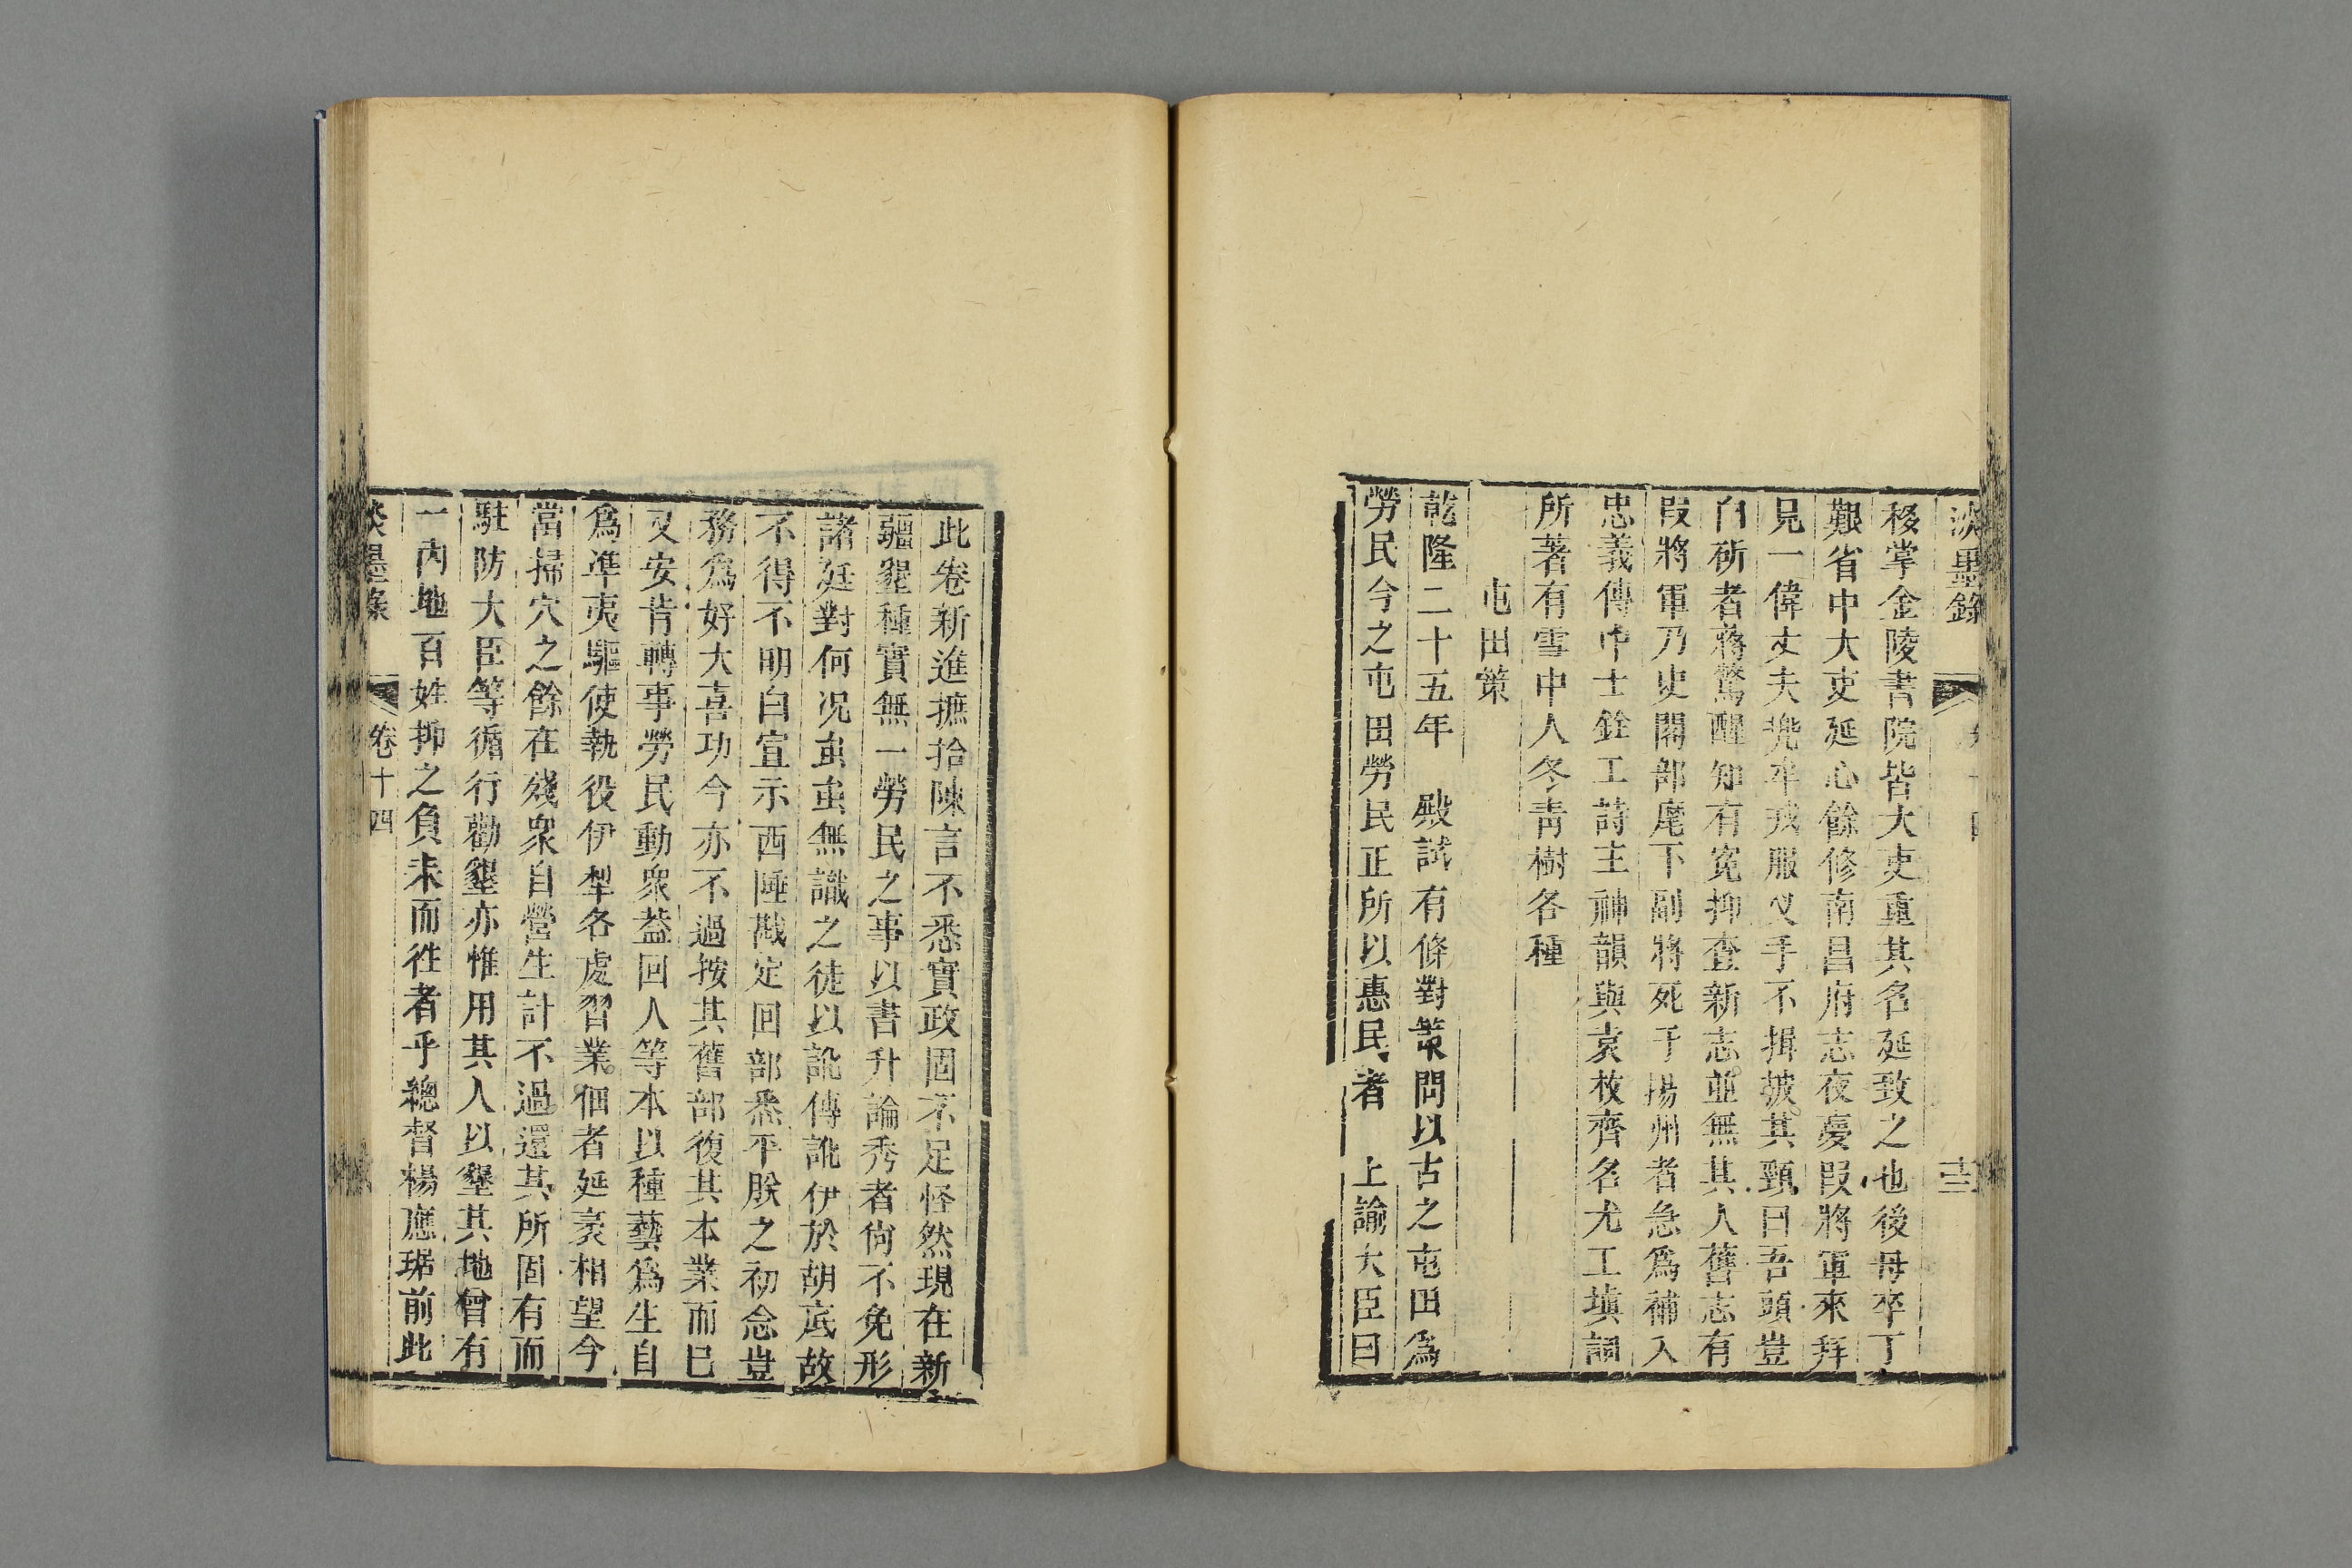 淡墨錄
十三
移掌金陵書院皆大吏重其名延致之也後母卒丁
艱省中大吏延心餘修南昌府志夜憂叚將軍來拜
見一偉丈夫兠牟戎服叉手不揖披其頸曰吾頭豈
白斫者蔣驚醒知有寃抑查新志並無其人舊志有
叚將軍乃史閣部麾下副將死于揚州者急爲補入
忠義傳中士銓工詩主神韻與袁枚齊名尤工塡詞
所著有雪中人冬青樹各種
屯田策
乾隆二十五年　殿試有條對策問以古之屯田爲
勞民今之屯田勞民正所以惠民者　上諭大臣曰
此卷新進摭拾陳言不悉實政固不足怪然現在新
疆墾種實無一勞民之事以書升論秀者尙不免形
諸廷對何况䖝䖝無識之徒以訛傳訛伊於胡底故
不得不明白宣示西陲戡定回部悉平朕之初念豈
務爲好大喜功今亦不過按其舊部復其本業而已
又安肯轉事勞民動衆葢回人等本以種藝爲生自
爲凖夷驅使執役伊犁各處習業佃者延袤相望今
當掃穴之餘在殘衆自營生計不過還其所固有而
駐防大臣等循行勸墾亦惟用其人以墾其地曾有
一內地百姓抑之負耒而徃者乎總督楊應琚前此
淡墨錄
卷十四